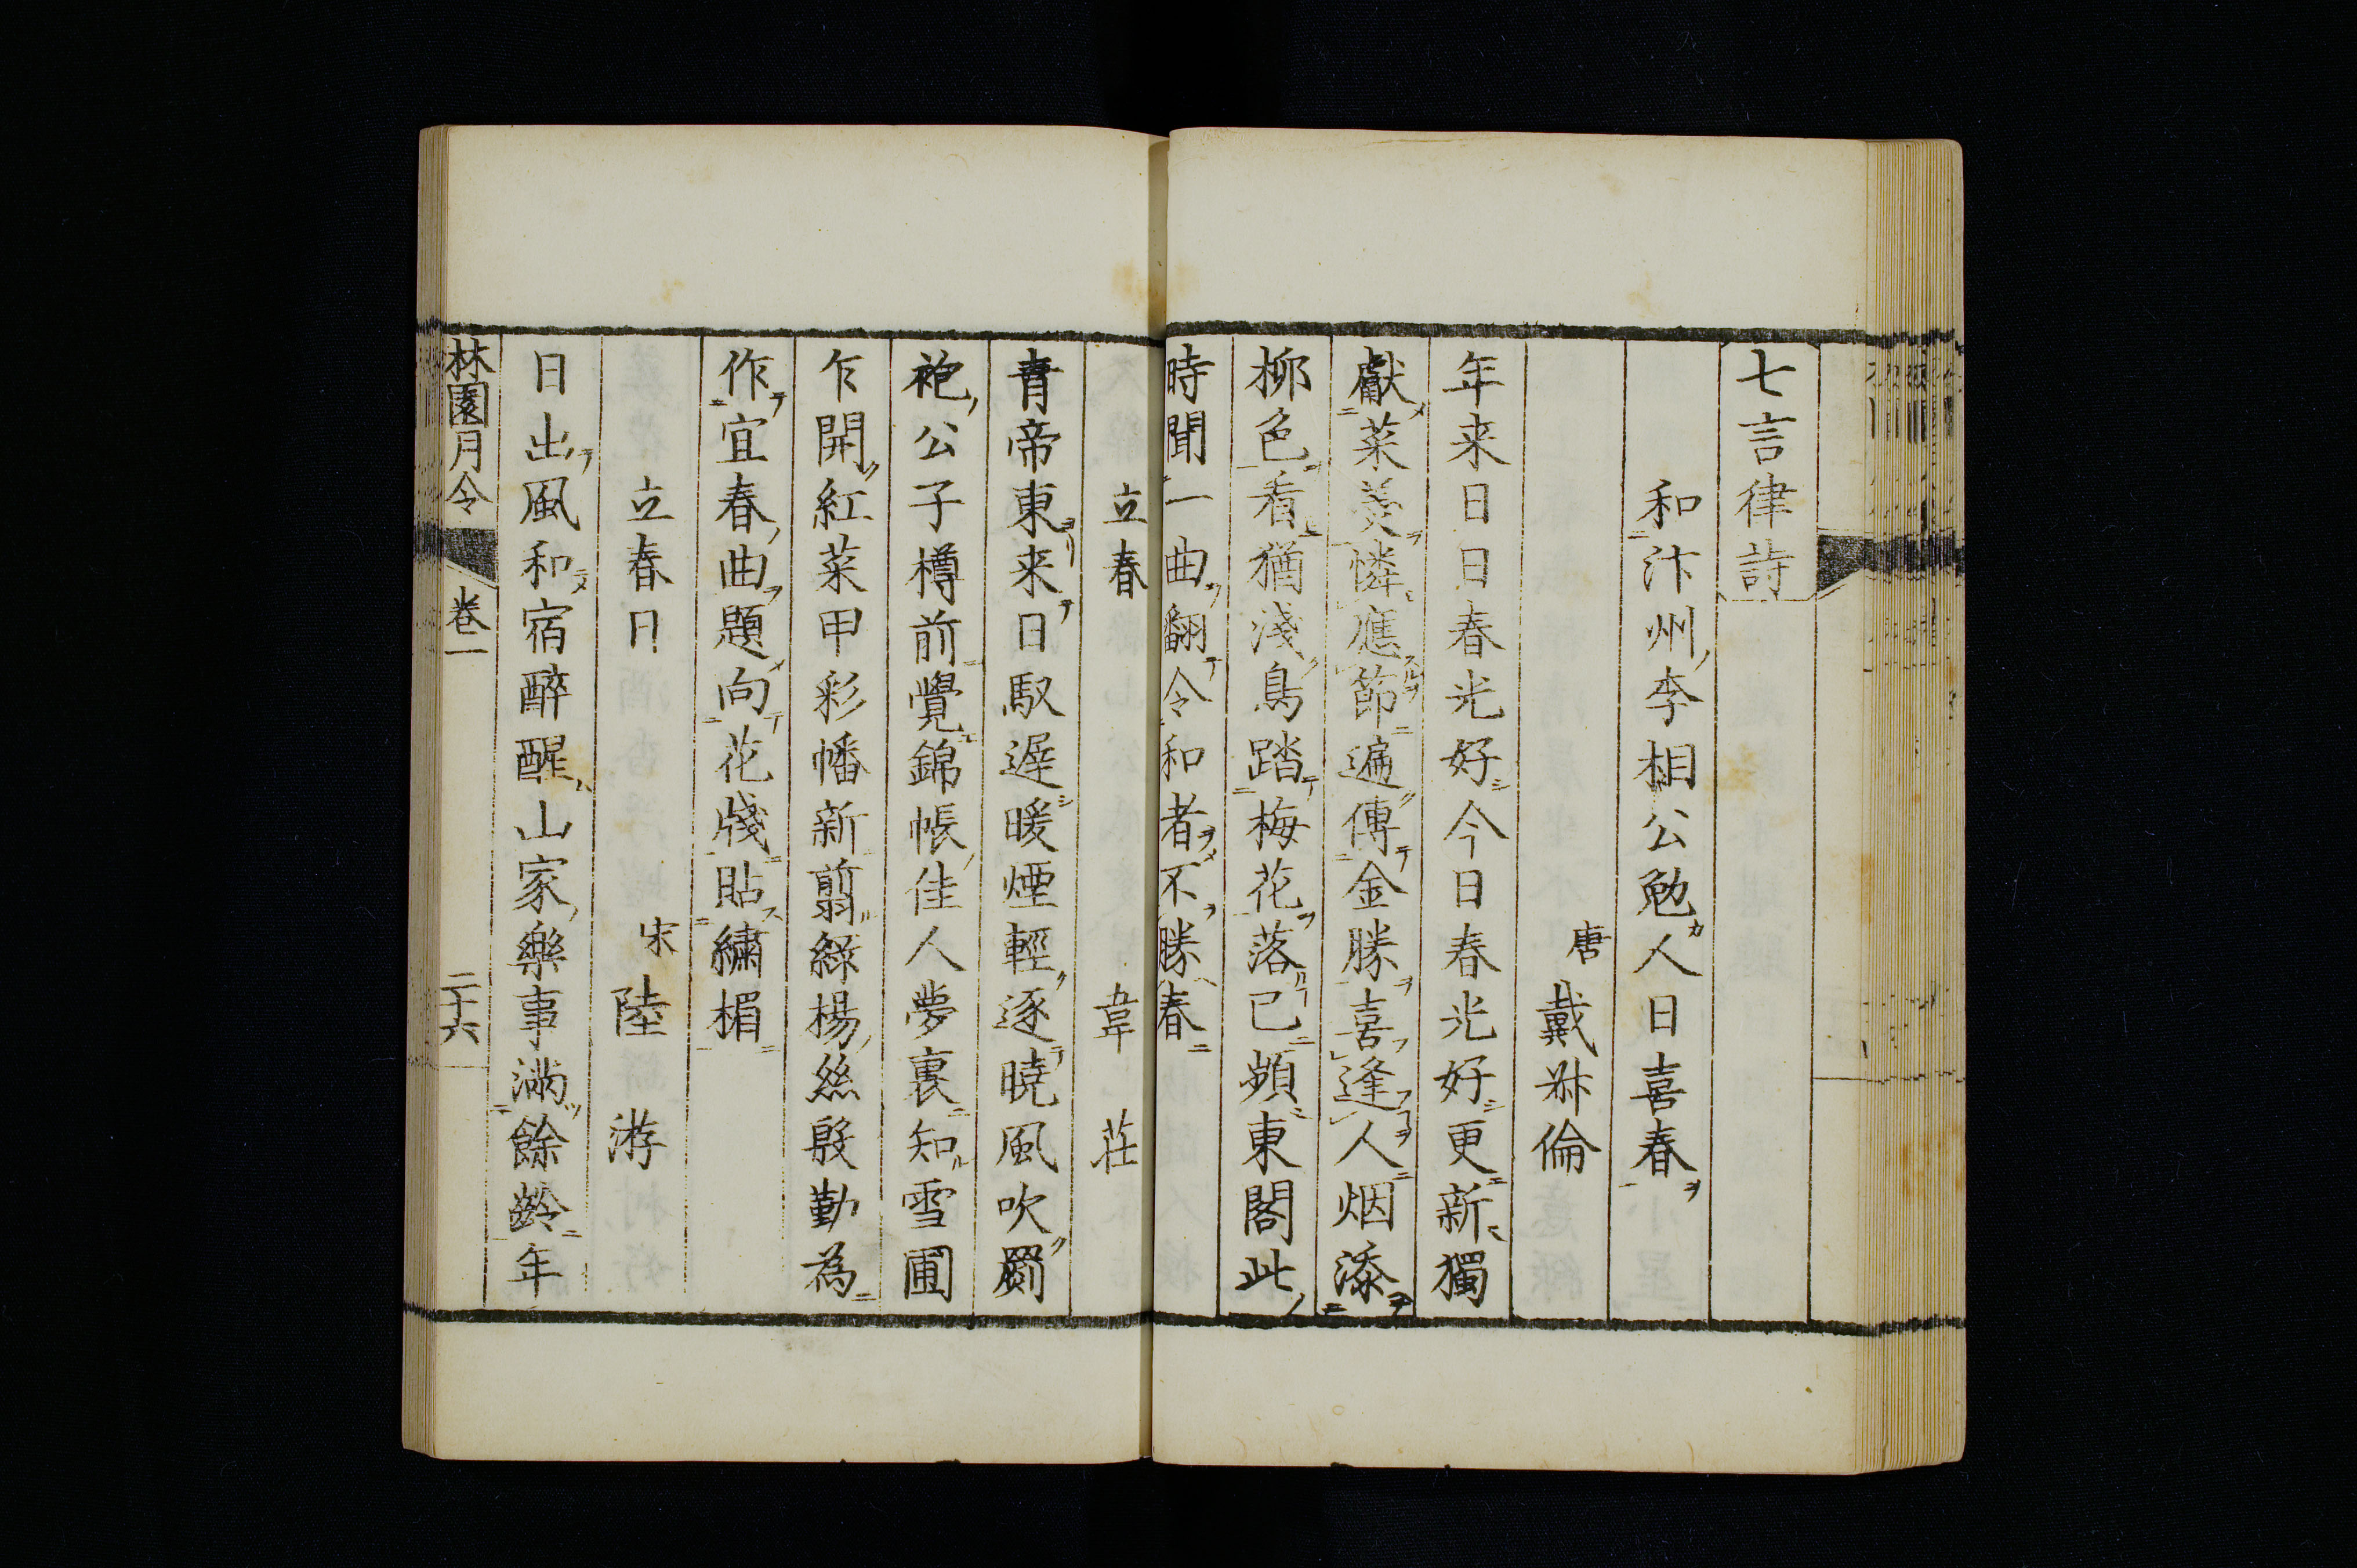 七言律詩
和汴州李相公勉人日喜春
唐 戴叔倫
年来日日春光好今日春光好更新獨
獻菜羹憐應節遍傳金勝喜逢人烟添
柳色看猶淺鳥踏梅花落已頻東閣此
時聞一曲翻令和者不勝春
立春 韋莊
青帝東来日馭遲暖煙輕逐曉風吹罽
袍公子樽前覺錦帳佳人夢裏知雪圃
乍開紅菜甲彩幡新翦綠楊絲殷勤為
作宜春曲題向花牋貼繡楣
立春日
宋 陸游
日出風和宿醉醒山家樂事滿餘齡年
林園月令 卷一 二十六